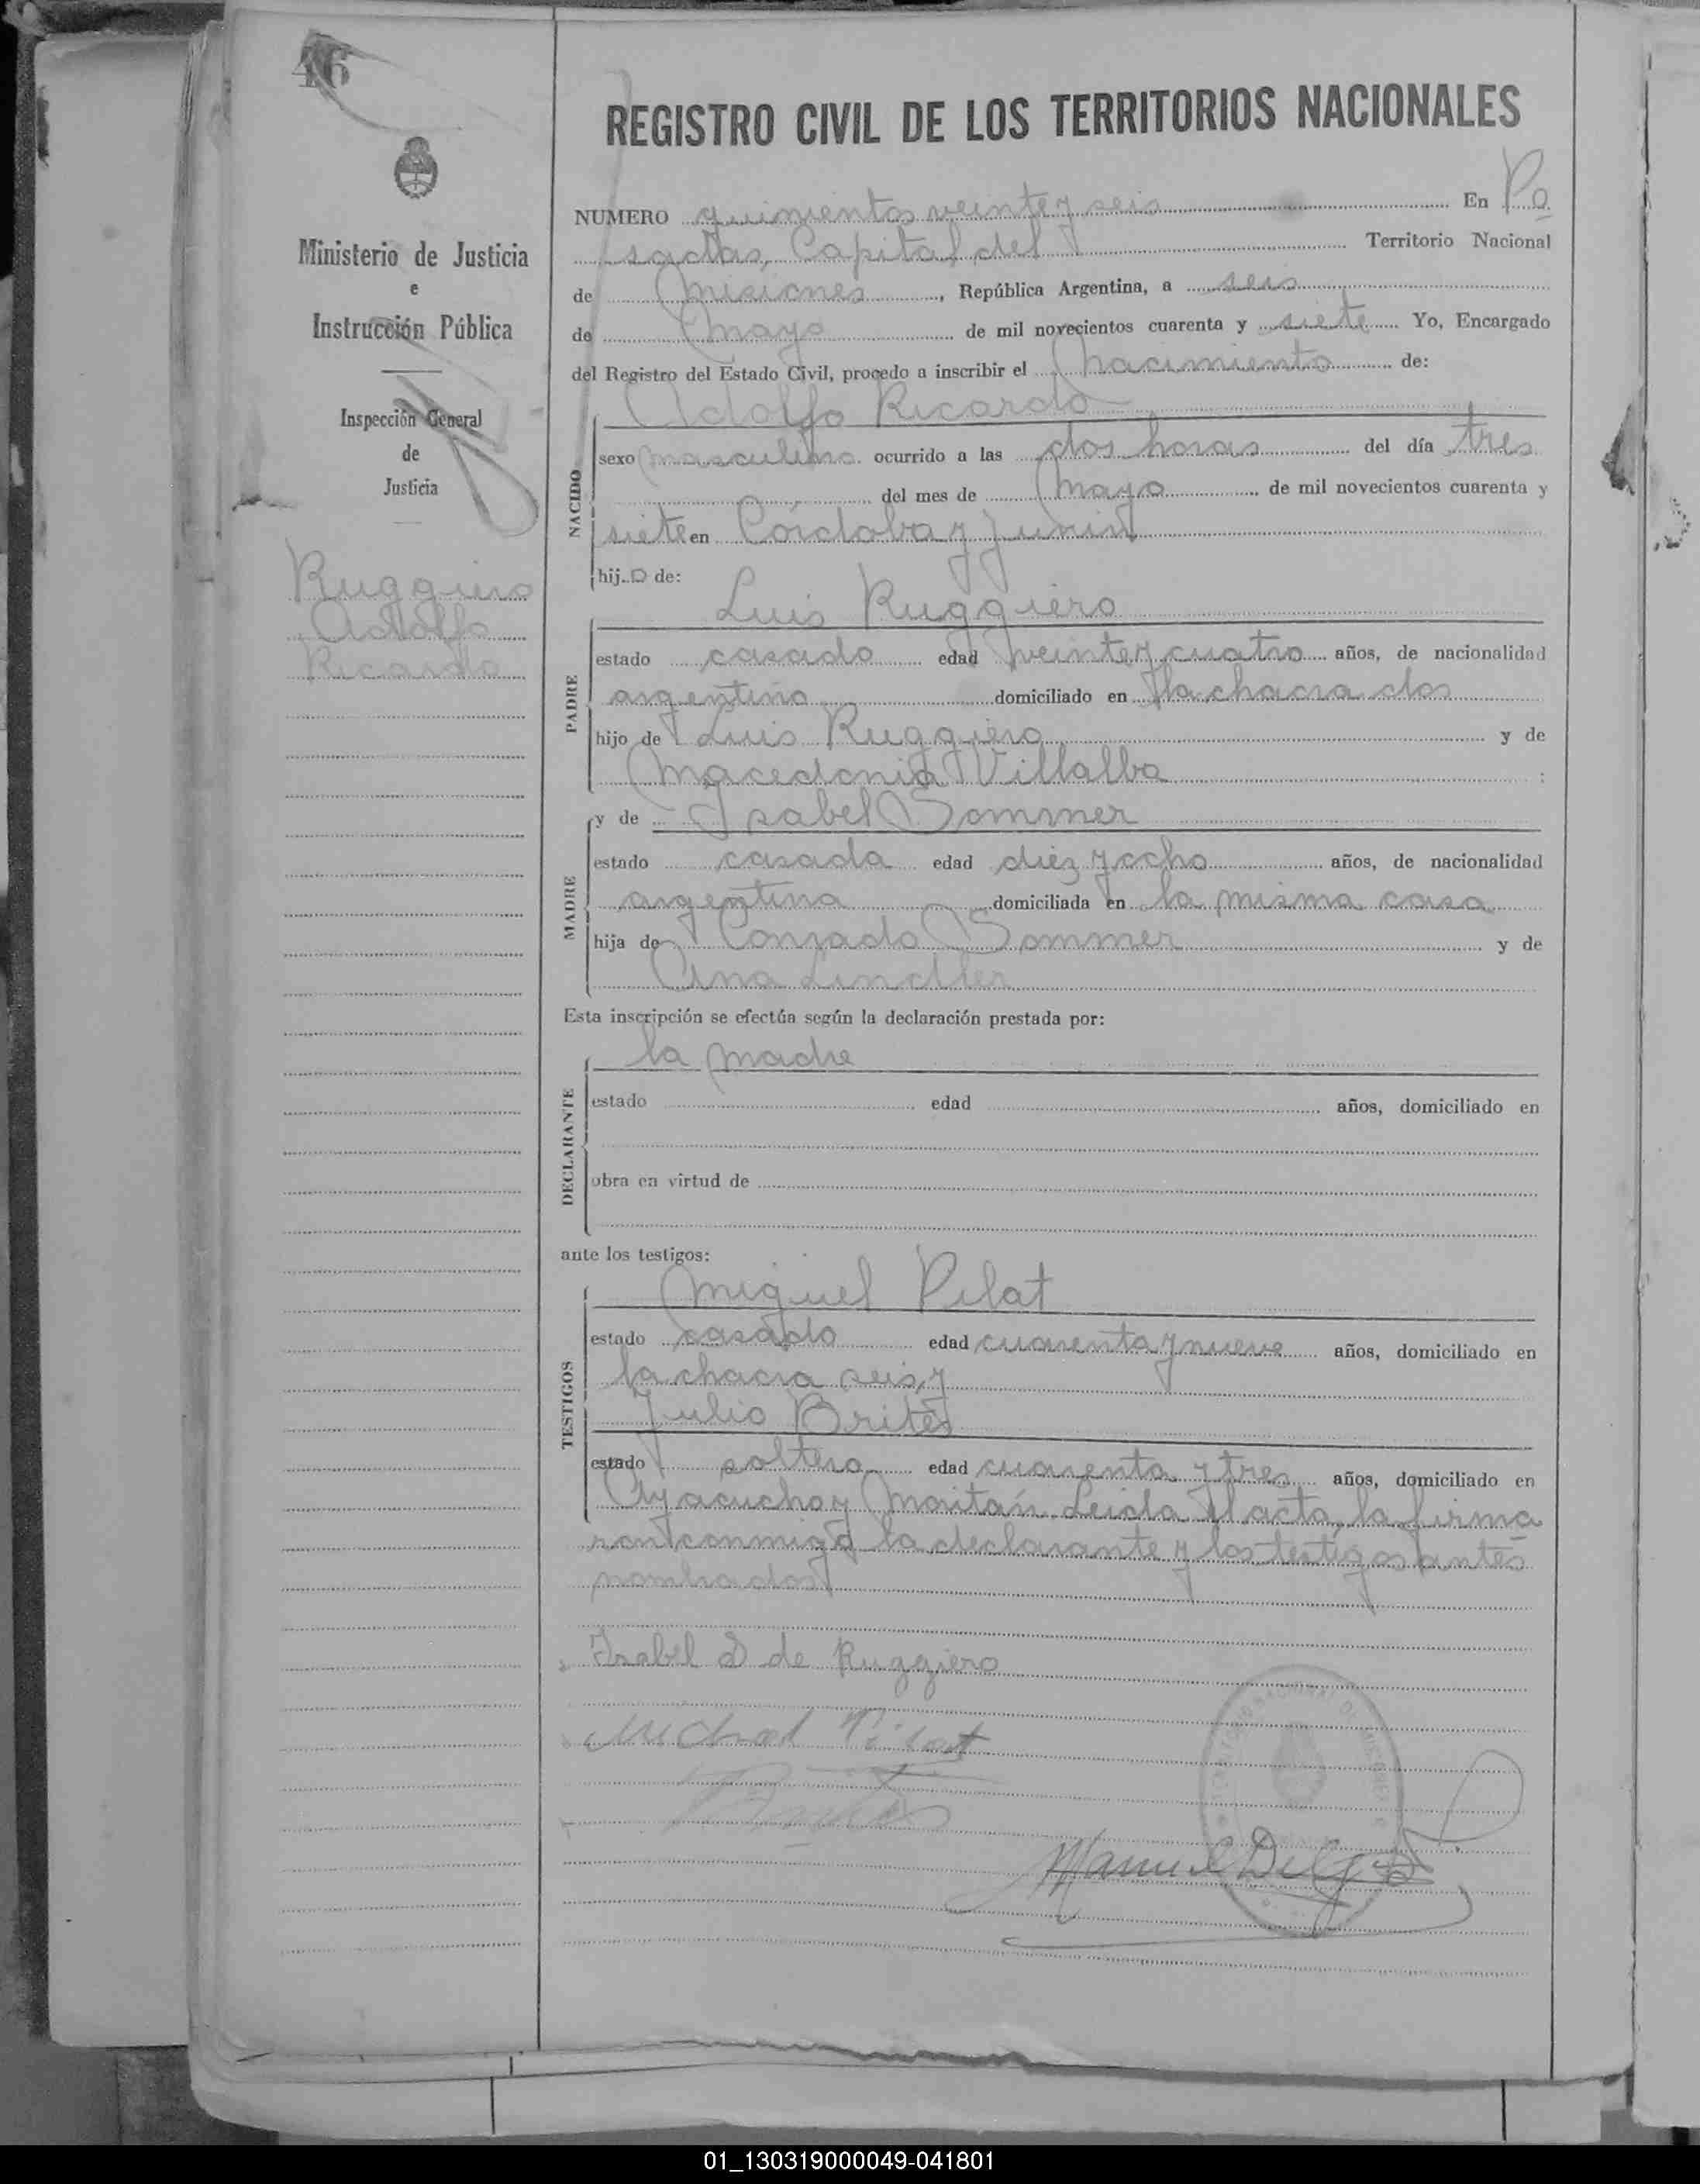 46
Ministerio de Justicia
e
Instrucción Pública
Inspección General
de
Justicia
Ruggiero
Adolfo
Ricardo
REGISTRO CIVIL DE LOS TERRITORIOS NACIONALES
NUMERO quinientos veinte y seis En Po
sadas, Capital del Territorio Nacional
de Misiones, República Argentina, a seis
de Mayo de mil novecientos cuarenta y siete Yo, Encargado
del Registro del Estado Civil, procedo a inscribir el nacimiento de:
Adolfo Ricardo
NACIDO
sexo masculino ocurrido a las dos horas del día tres
del mes de Mayo de mil novecientos cuarenta y
siete en Córdoba y Junin
hijo de:
Luis Ruggiero
PADRE
estado casado edad veinte y cuatro años, de nacionalidad
argentino domiciliado en la chacra dos
hijo de Luis Ruggiero y de
Macedonia Villalba :
y de Isabel Sommer
MADRE
estado casada edad diez y ocho años, de nacionalidad
argentina domiciliada en la misma casa
hija de Conrado Sommer y de
Ana Lindler
Esta inscripción se efectúa según la declaración prestada por:
la madre
DECLARANTE
estado edad años, domiciliado en
obra en virtud de
ante los testigos:
Miguel Pilat
TESTIGOS
estado casado edad cuarenta y nueve años, domiciliado en
la chacra seis, y
Julio Brites
estado soltero edad cuarenta y tres años, domiciliado en
Ayacucho y Moritán. Leida el acta, la firma
ron conmigo la declarante y los testigos antes
nombrados
Isabel S de Ruggiero
Michal Pilat
Manuel Delgado
01_130319000049-041801